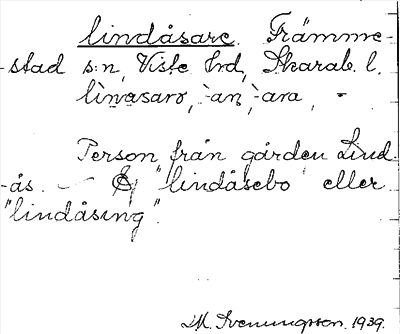 lindåsare. Främme-
-stad s:n, Viste hrd, Skarab. l.
linasarə, -an, -ara, -
Person från gården Lind-
-ås. — Ej "lindåsebo" eller
"lindåsing".
M. Sveningsson. 1939.